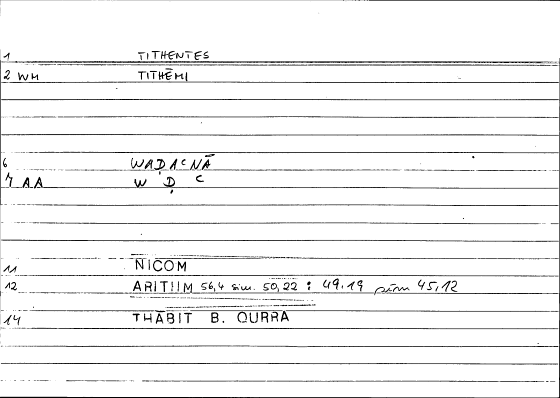 1 TITHENTES
2 WH TITHĒMI
6 WAḌAᶜNĀ
7 AA W Ḍ ᶜ
11 NICOM
12 ARITHM 56,4 sim. 50,22 : 49,19 45,12
14 THĀBIT B. QURRA